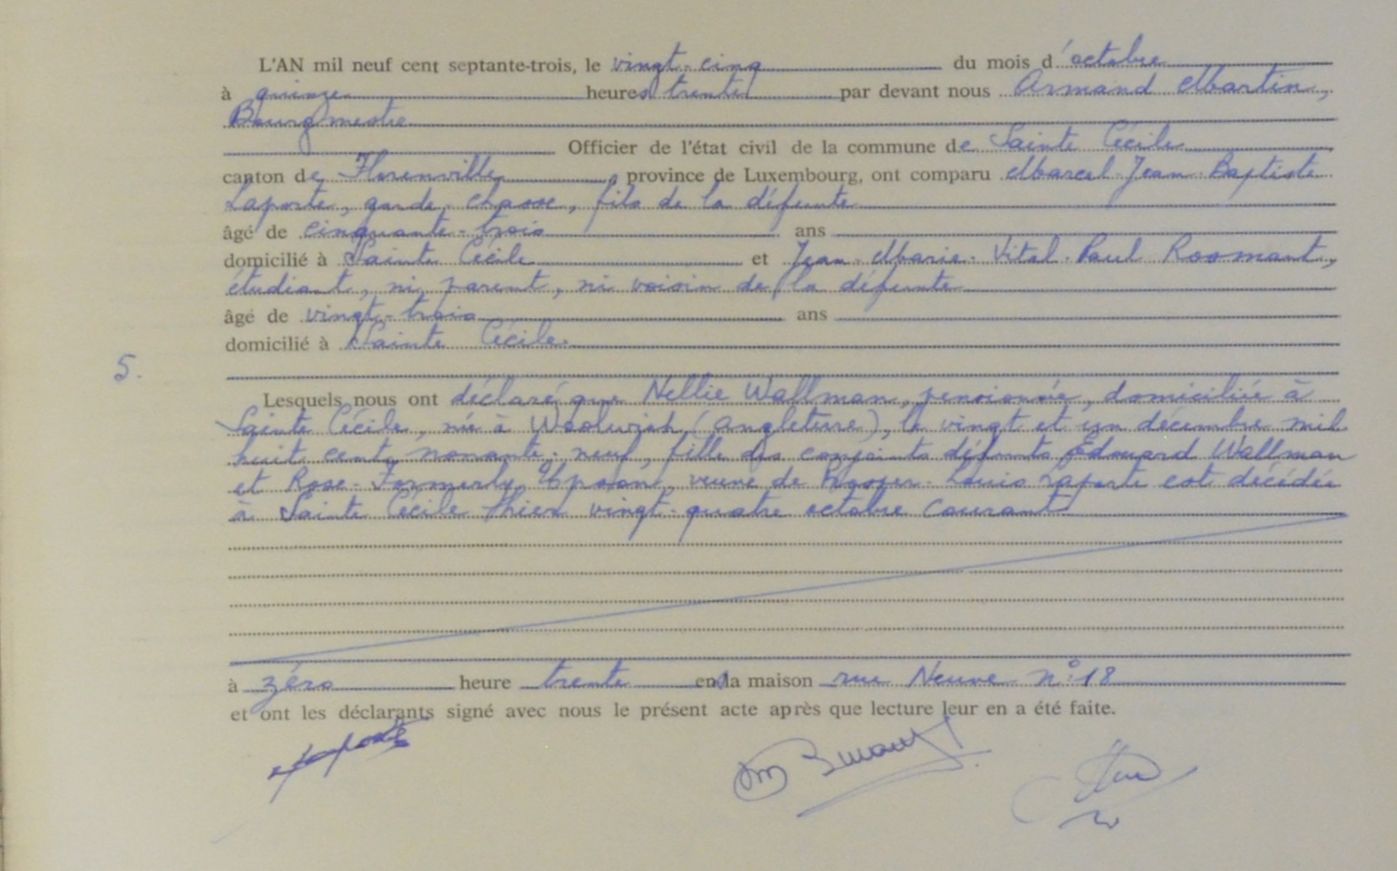 L'AN mil neuf cent septante-trois, le vingt-cinq du mois d'octobre
à quinze heures trente par devant nous Armand Martin,
Bourgmestre
Officier de l'état civil de la commune de Sainte Cécile
canton de Florenville, province de Luxembourg, ont comparu Marcel-Jean-Baptiste
Laporte, garde-chasse, fils de la défunte
âgé de cinquante-trois ans
domicilié à Sainte Cécile et Jean-Marie-Vital-Paul Rosmant,
étudiant, ni parent, ni voisin de la défunte
âgé de vingt-trois ans
domicilié à Sainte Cécile.
5.
Lesquels nous ont déclaré que Nellie Wallman, pensionnée, domiciliée à
Sainte Cécile, née à Woolwich (Angleterre), le vingt et un décembre mil
huit cent nonante-neuf, fille des conjoints défunts Edouard Wallman
et Rose-Formerly, veuve de Louis Laporte est décédée
à Sainte Cécile hier vingt-quatre octobre courant
à zéro heure trente en la maison rue Neuve n° 18
et ont les déclarants signé avec nous le présent acte après que lecture leur en a été faite.
Laporte